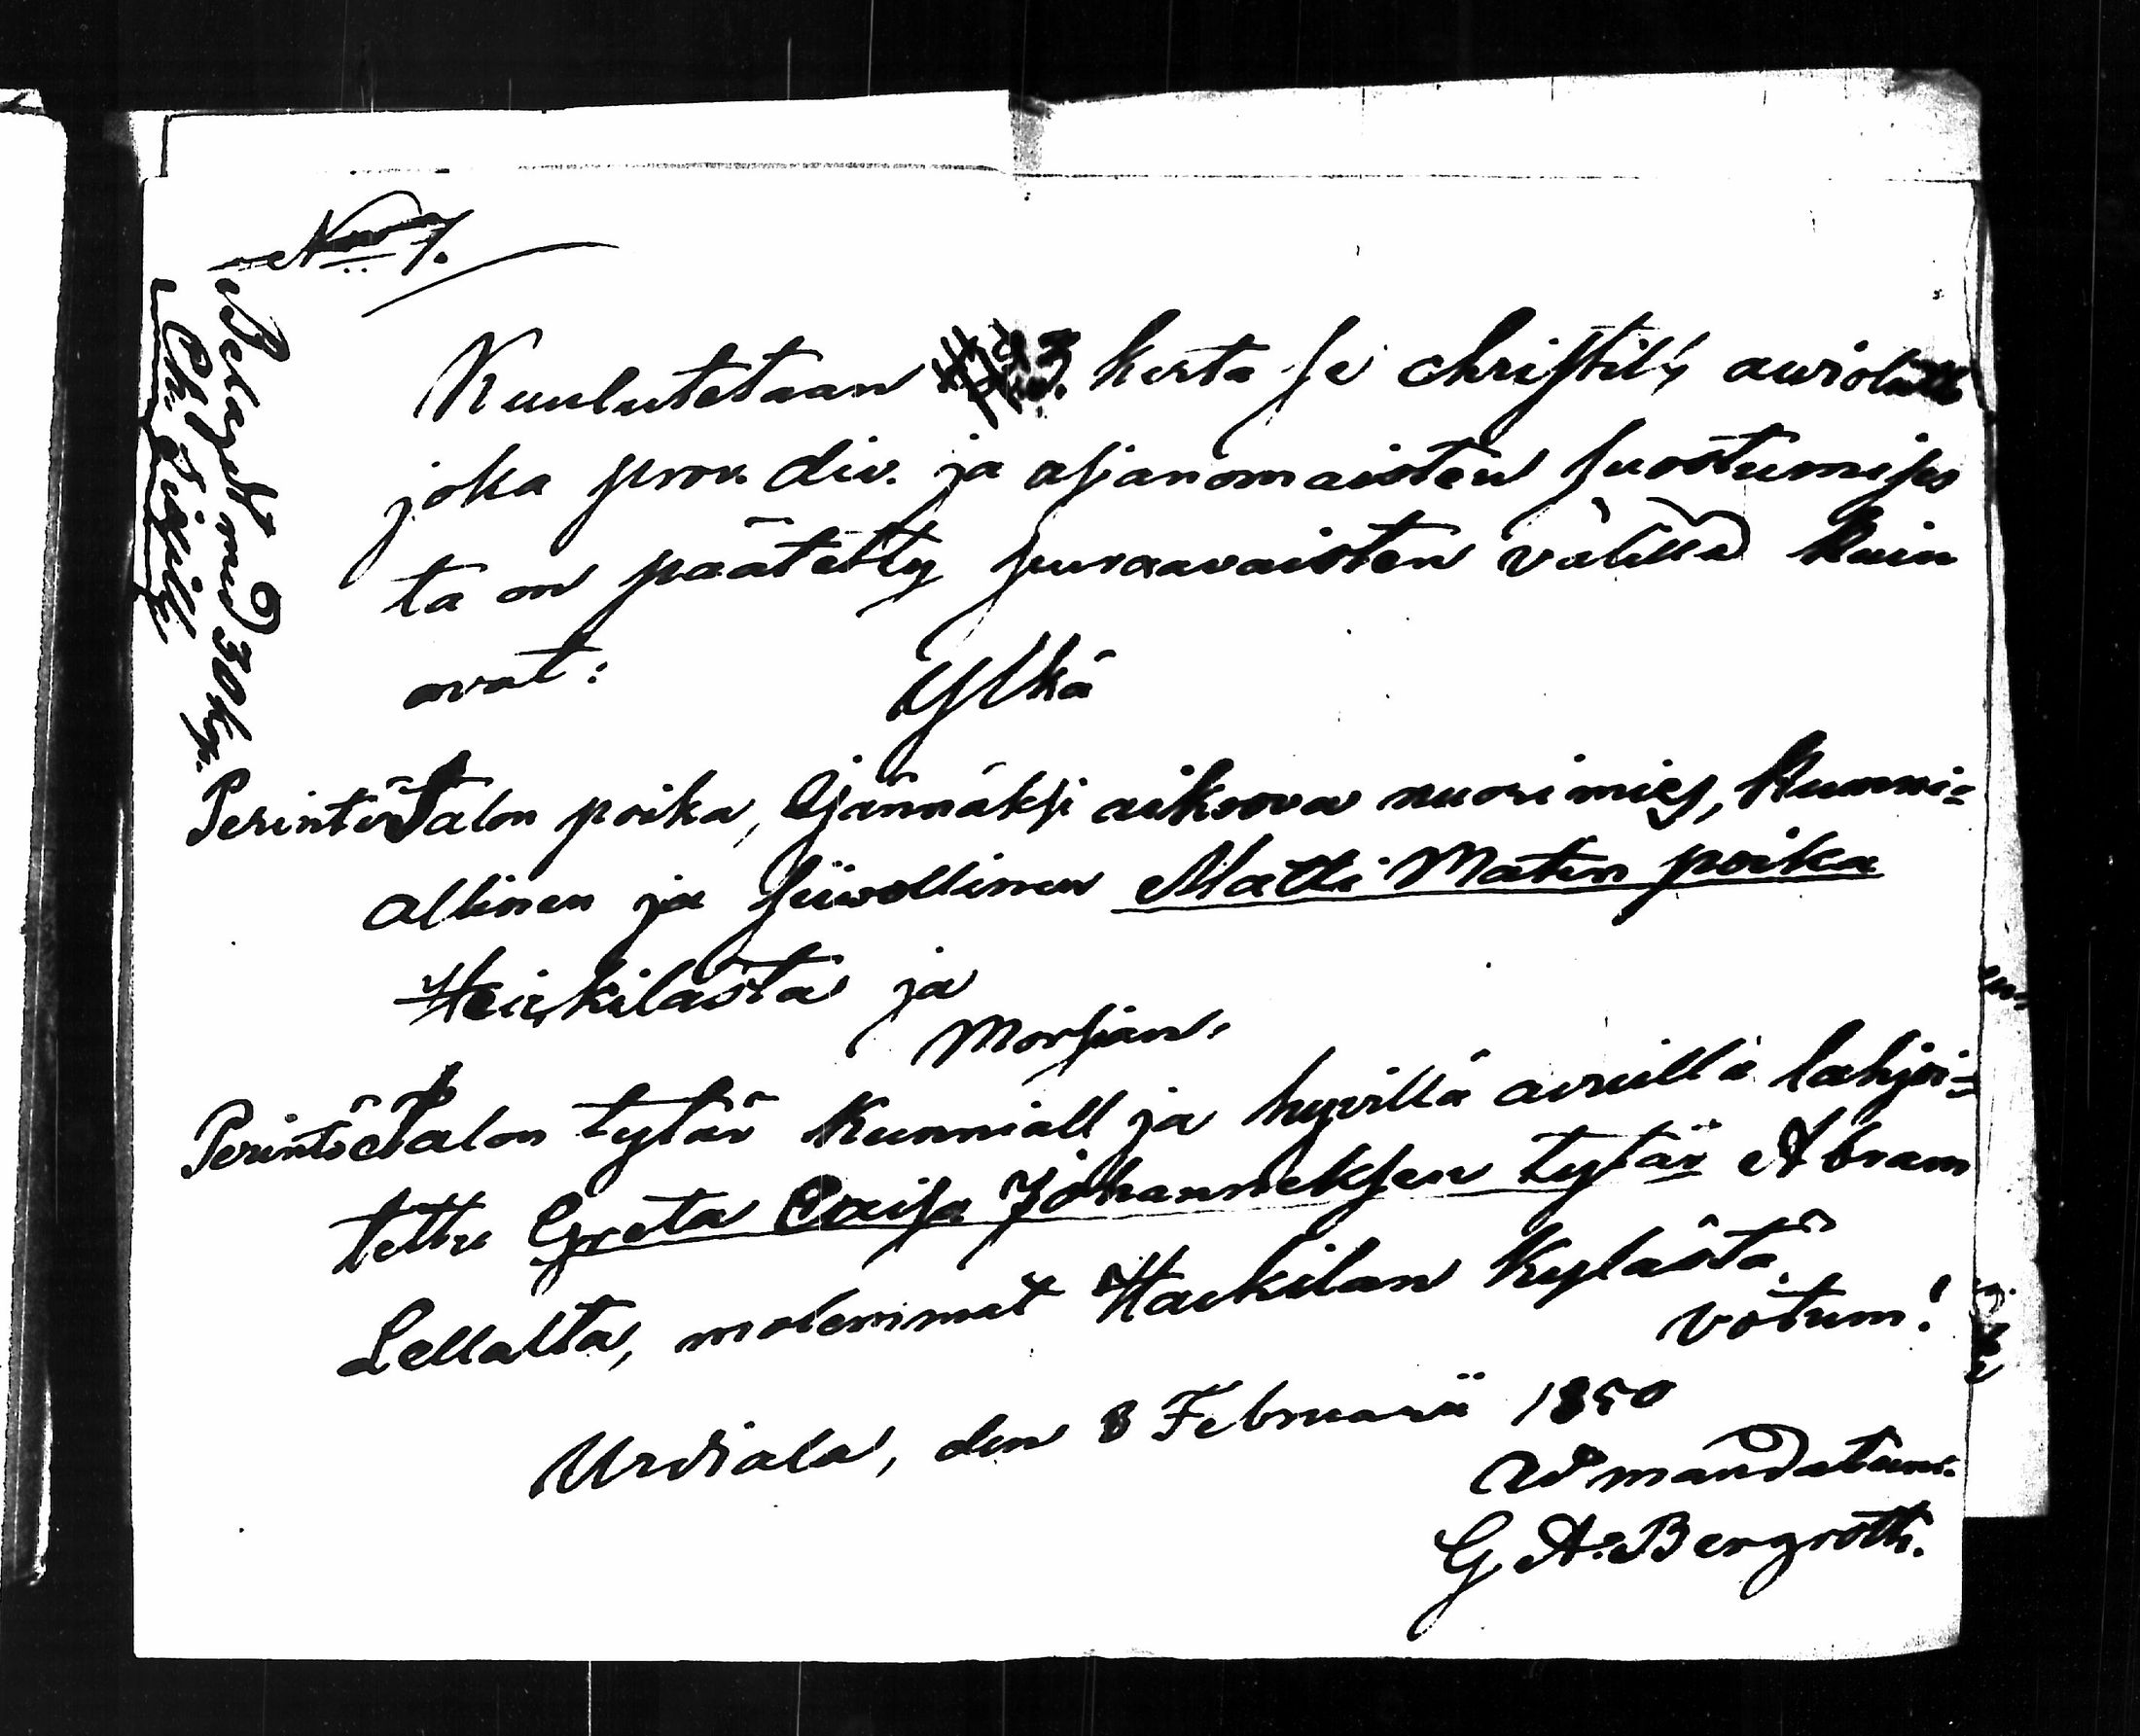 N:o 7.
Betagit med 30 kop.
Kuulutetaan 3 kerta se christil: avioliitto
joka prov. div. ja asjanomaisten suostumises
ta on päätetty seuraavaisten välillä kuin
ovat:
Ylkä
Perintötalon poika, Isännäksi aikoova nuori mies, kunni=
allinen ja siivollinen Matti Matin poika
Heikkilästä ja
Morsian:
Perintötalon tytär kunniall. ja hyvillä avuilla lahjoi=
tettu Greta Caisa Johanneksen tytär Abram
Lellalta, molemmat Hackilan kylästä.
votum!
Urdiala, den 8 Februarii 1850
Ad mandatum.
G. A. Bergroth.